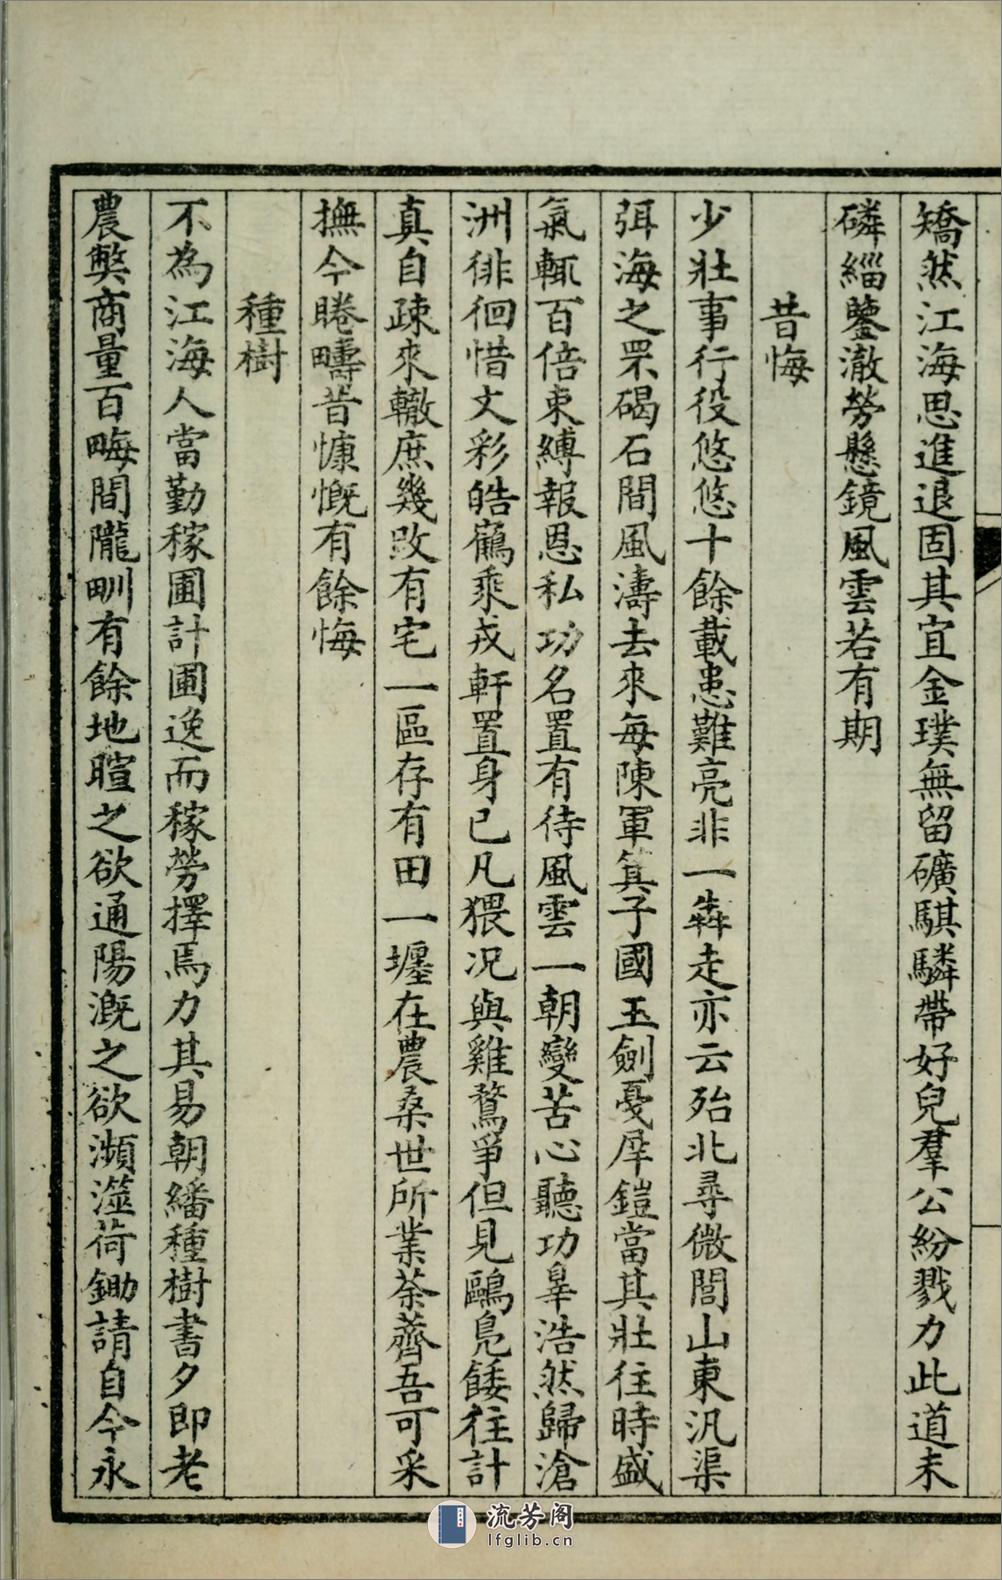 矯然江海思進退固其宜金璞無留礦騏驎帶好兒羣公紛戮力此道未
磷緇鑒澈勞懸鏡風雲若有期
昔悔
少壯事行役悠悠十餘載患難亮非一犇走亦云殆北尋微閭山東汎渠
弭海之罘碣石間風濤去來每陳軍箕子國玉劍憂犀鎧當其壯往時盛
氣輒百倍束縛報恩私功名置有待風雲一朝變苦心聽功辠浩然歸滄
洲徘徊惜文彩皓鶴乘戎軒置身已凡猥況與雞鶩爭但見鷗鳧餧往計
真自疎來轍庶幾改有宅一區存有田一壥在農桑世所業荼薺吾可采
撫今睠疇昔慷慨有餘悔
種樹
不為江海人當勤稼圃計圃逸而稼勞擇焉力其易朝繙種樹書夕即老
農㢢商量百畮間隴甽有餘地暄之欲通陽溉之欲瀕澨荷鋤請自今永